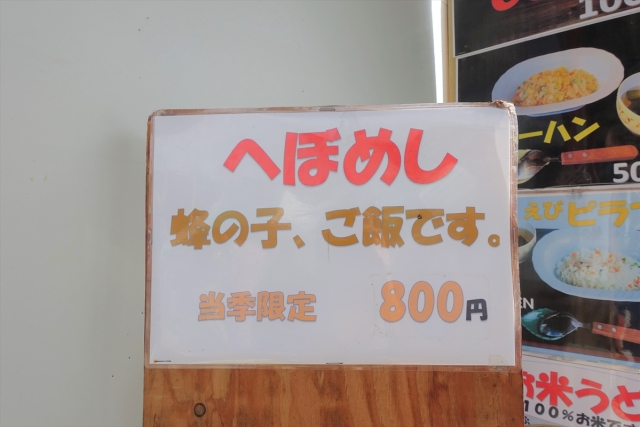 へぼめし
蜂の子、ご飯です。
当季限定 800円
100
ーハン
50
えびピラフ
EN
お米うど
100%お米です